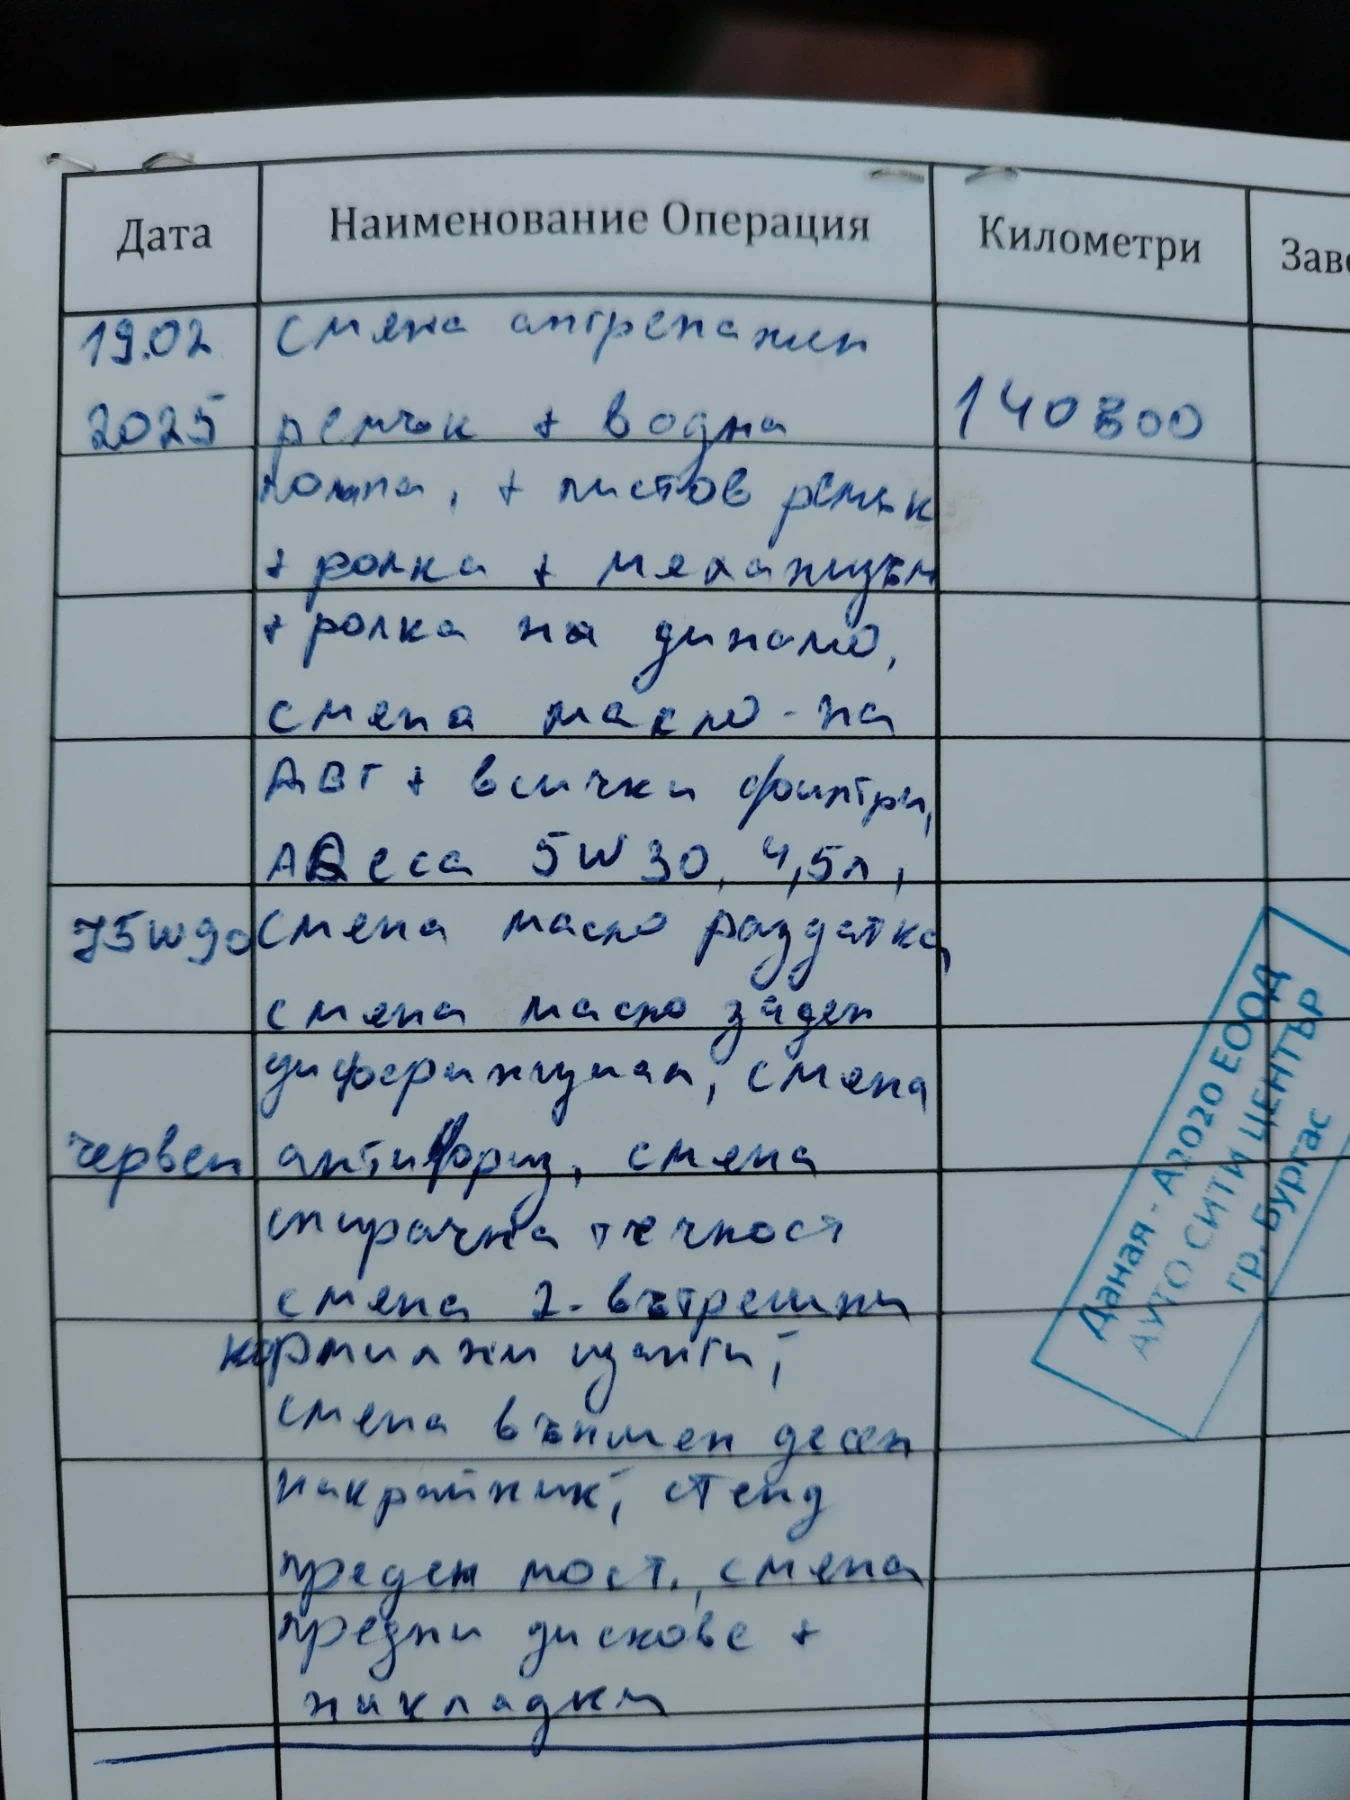 Дата Наименование Операция Километри Заве
19.02 смяна ангренажен
2025 ремък + водна 140300
помпа, + пистов ремък
+ ролка + механизъм
+ ролка на динамо,
смяна масло - на
ДВГ + всички филтри,
Адеса 5W30, 4,5л,
75W90 смяна масло раздатка,
смяна масло заден
диференциал, смяна
червен антифриз, смяна
спирачна течност
смяна 2-вътрешни
кормилни щанги,
смяна външен десен
накрайник, стенд
преден мост, смяна
предни дискове +
накладки
Даная - А2020 ЕООД
АУТО СИТИ ЦЕНТЪР
гр. Бургас